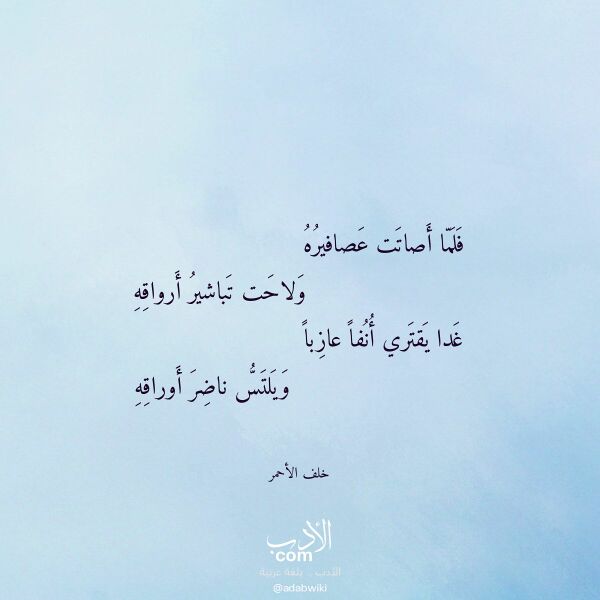 فَلَمّا أَصاتَت عَصافيرُهُ
وَلاحَت تَباشيرُ أَرواقِهِ
غَدا يَقتَري أُنُفاً عازِباً
وَيَلتَسُّ ناضِرَ أَوراقِهِ
خلف الأحمر
الأدب
com
الأدب .. بلغة عربية
@adabwiki